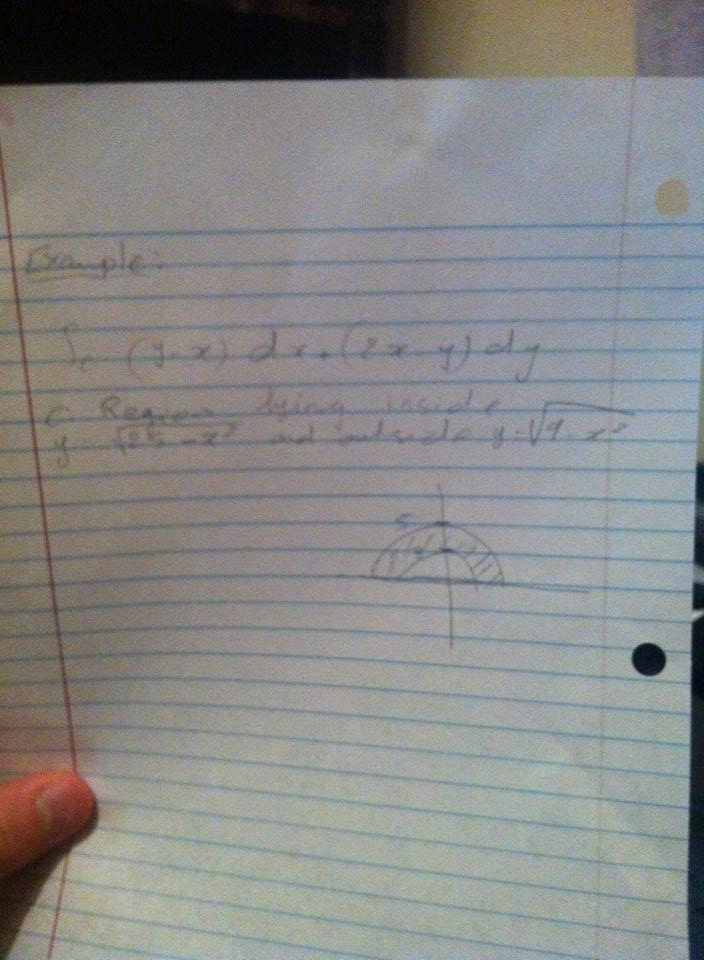 Example:
∫c (y-x) dx + (2x-y) dy
C: Region lying inside
y = √25-x² and outside y = √9-x²
5